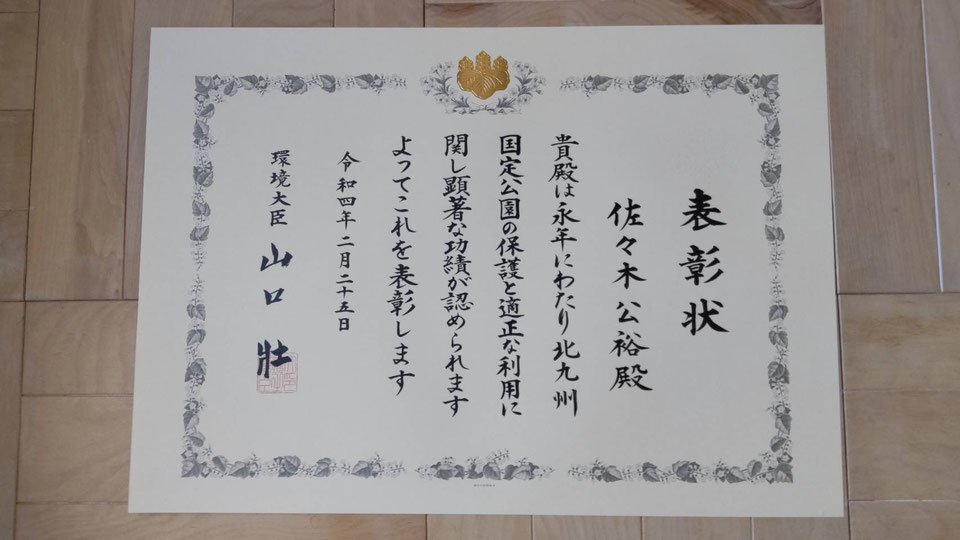 表彰状
佐々木公裕殿
貴殿は永年にわたり北九州
国定公園の保護と適正な利用に
関し顕著な功績が認められます
よってこれを表彰します
令和四年二月二十五日
環境大臣 山口 壯